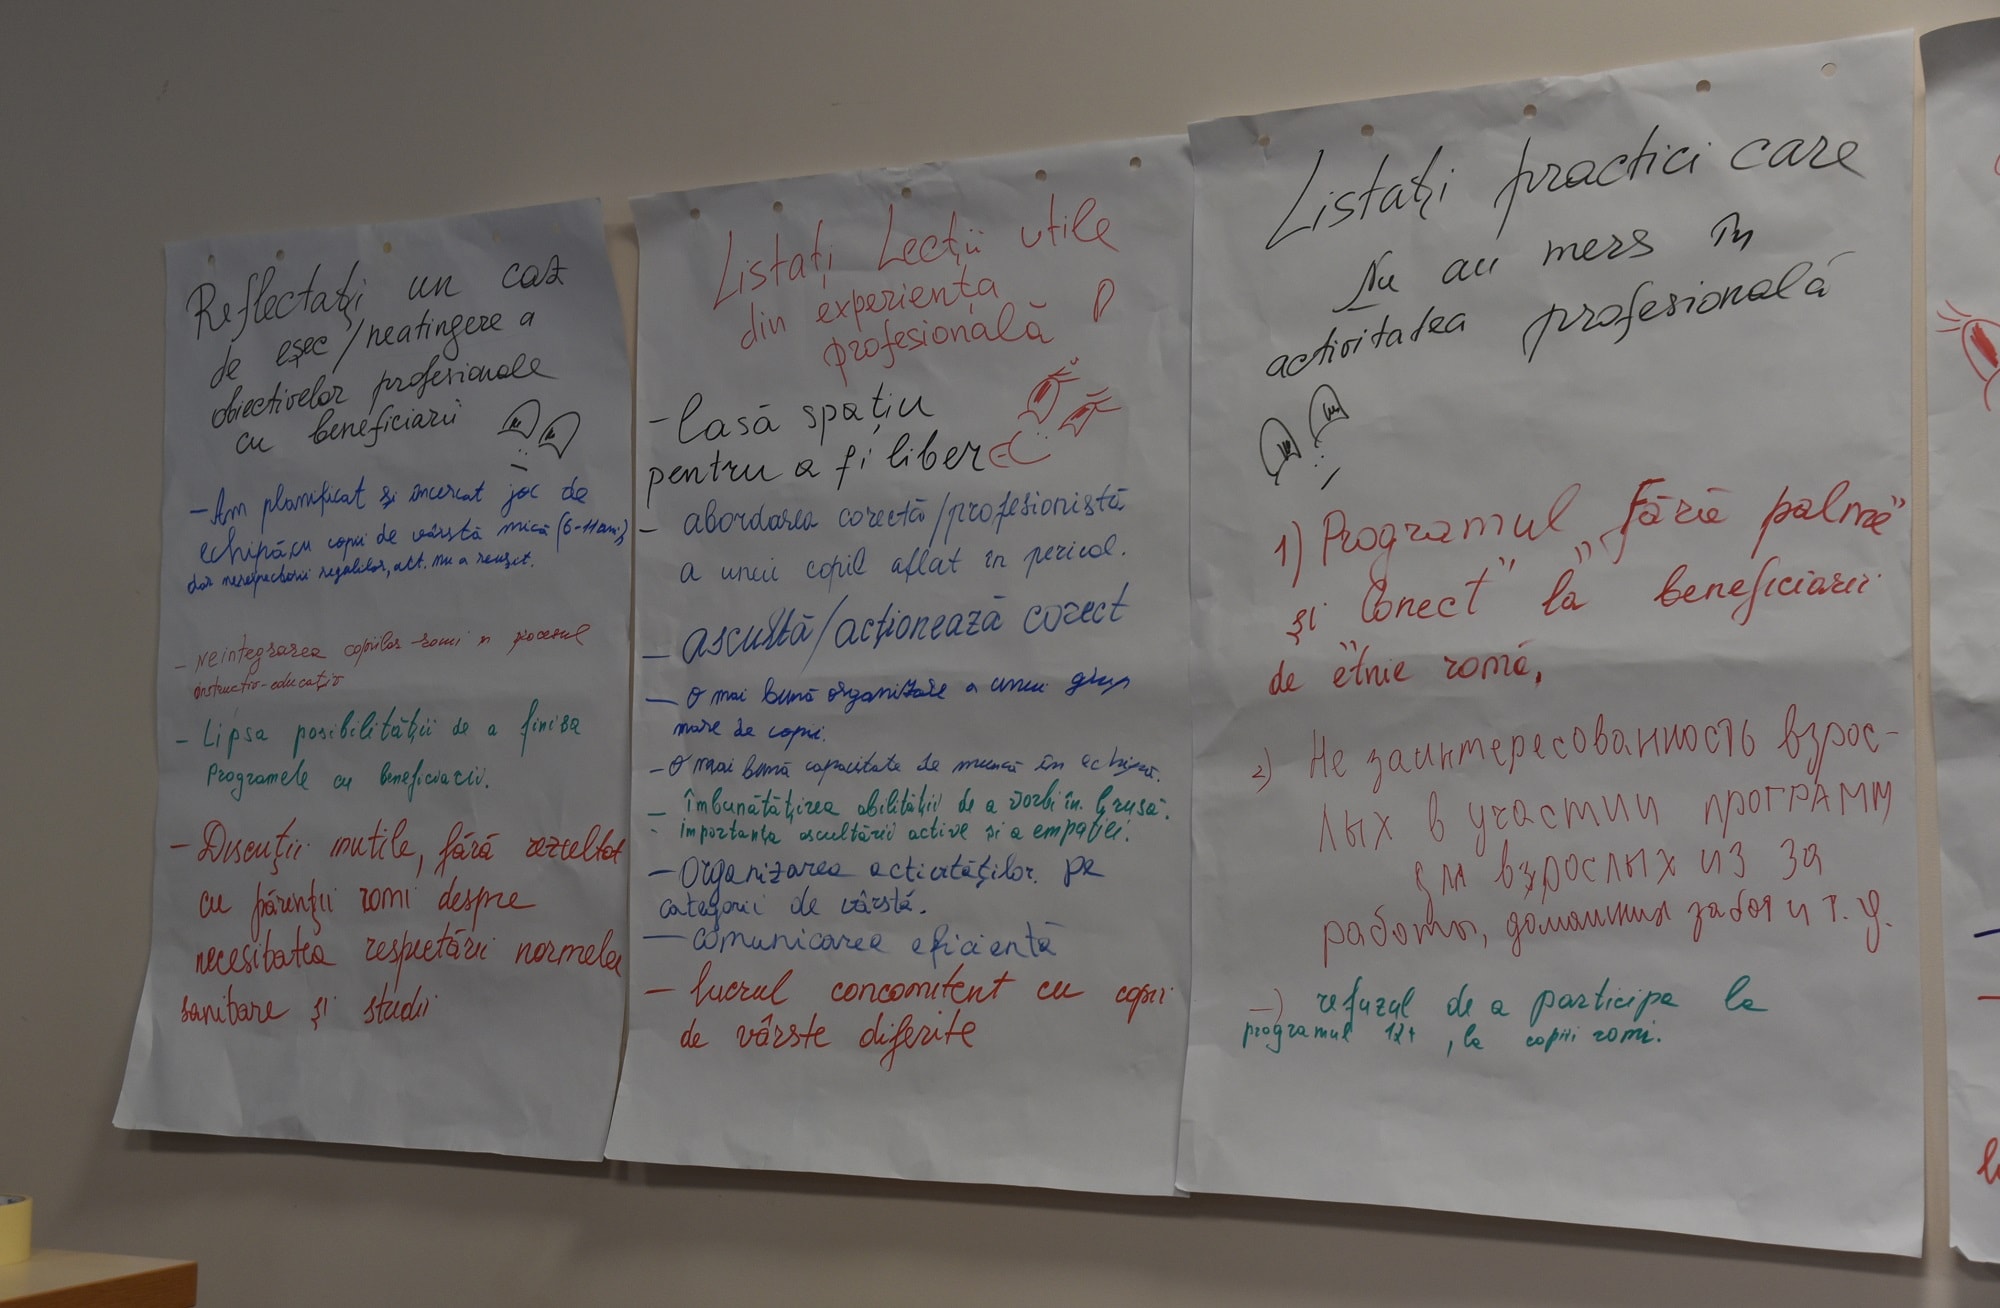 Reflectați un caz
de eșec/neatingere a
obiectivelor profesionale
cu beneficiarii
- Am planificat și încercat joc de
echipă cu copii de vârstă mică (6-11 ani)
dar nerespectării regulilor, act. nu a reușit.
- Neintegrarea copiilor romi n procesul
instructiv-educațiv
- Lipsa posibilității de a finisa
Programele cu beneficiarii.
- Discuții inutile, fără rezultat
cu părinții romi despre
necesitatea respectării normelor
sanitare și studii
Listați Lecții utile
din experiența
profesională
- lasă spațiu
pentru a fi liber
- abordarea corectă/profesionistă
a unui copil aflat în pericol.
- ascultă/acționează corect
- O mai bună organizare a unui grup
mare de copii.
- O mai bună capacitate de muncă în echipă.
- îmbunătățirea abilității de a vorbi în
- importanța ascultării active și a empatiei.
- Organizarea activităților pe
categorii de vârstă.
- comunicarea eficientă
- lucrul concomitent cu copii
de vârste diferite
Listați practici care
Nu au mers în
activitatea profesională
1) Programul „Fără palme"
și „Conect" la beneficiarii
de etnie romă,
2) Не заинтересованность взрос-
лых в участии программ
для взрослых из за
работы, домашних забот и т.д.
-) refuzul de a participa la
programul 12+, la copiii romi.